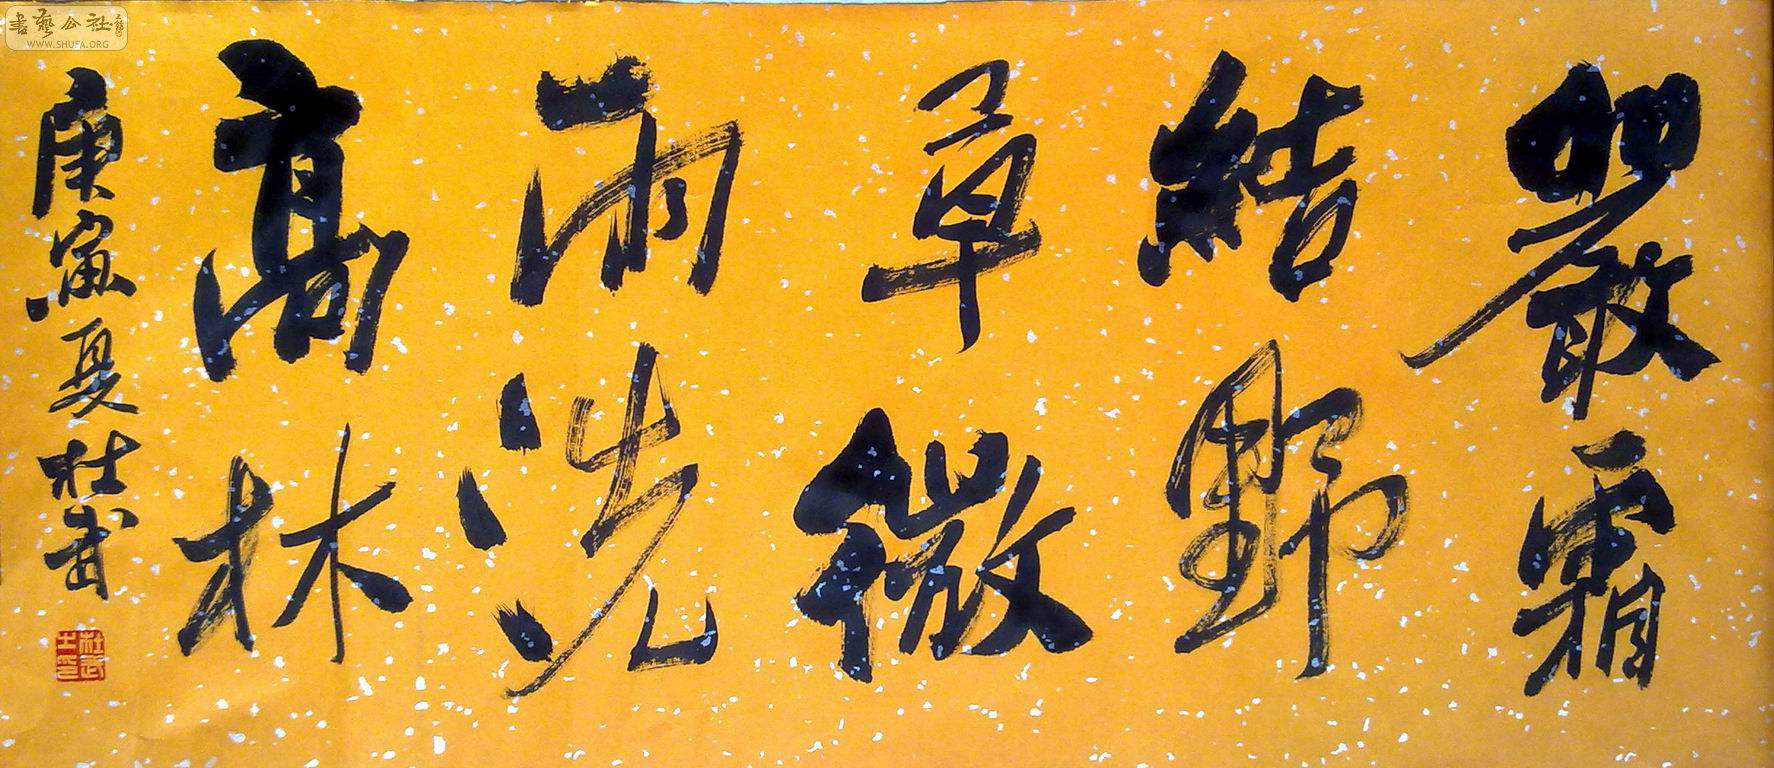 嚴霜
結野
草微
雨洗
高林
庚寅夏杜武
杜武
士印
書藝公社
WWW.SHUFA.ORG